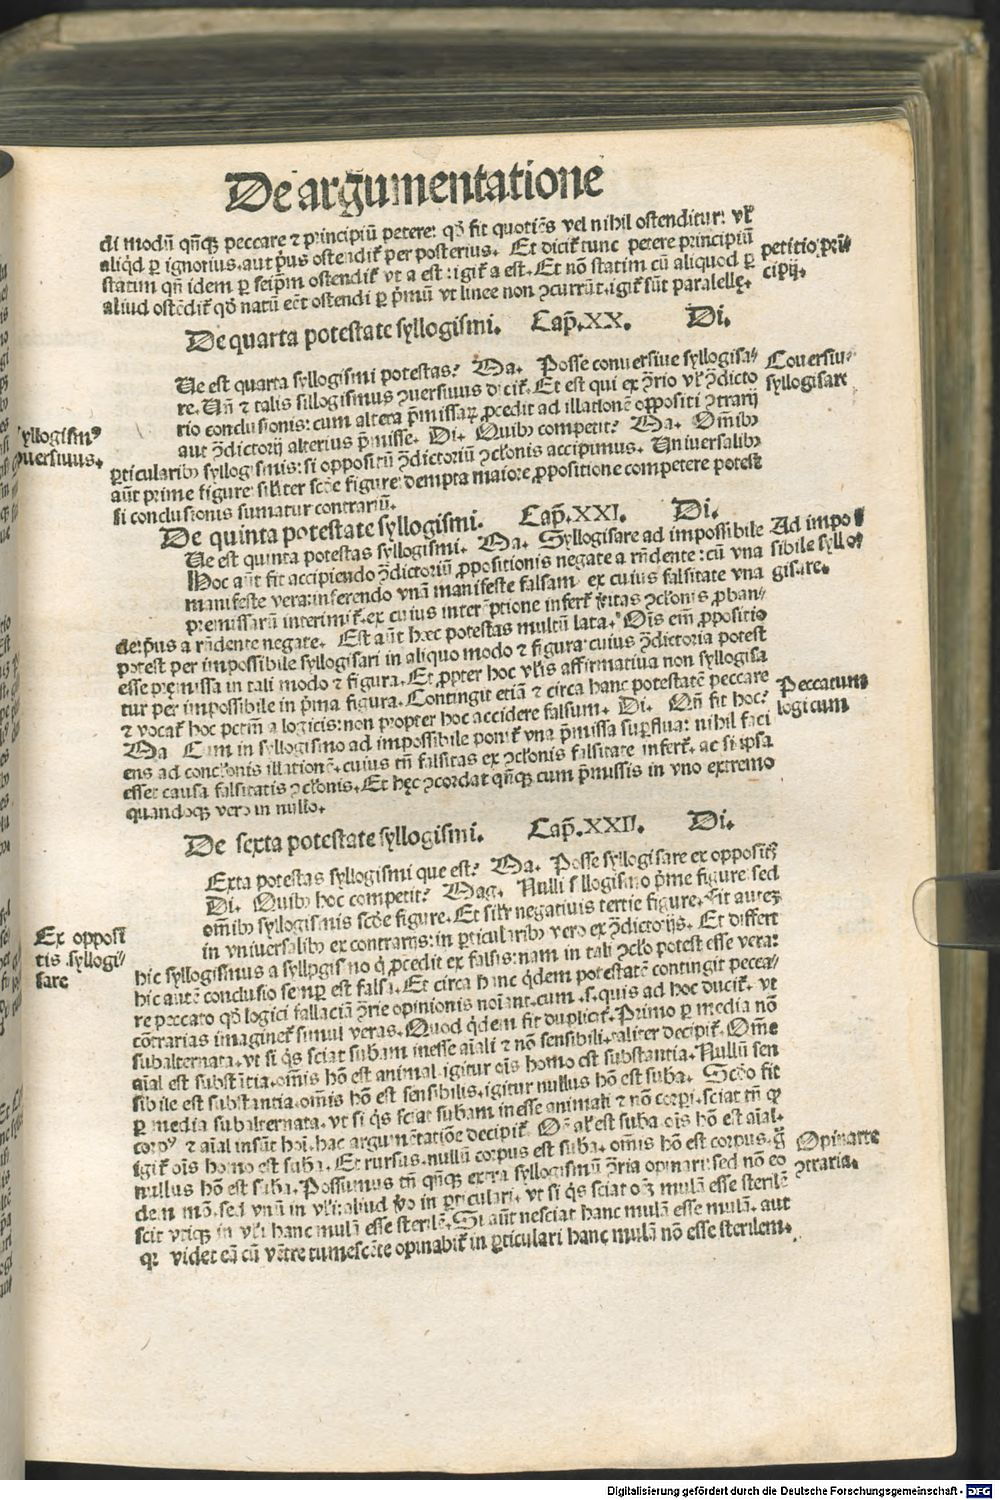 De argumentatione
di modū qñqꝫ peccare ⁊ principiū petere: qď fit quotiēs vel nihil ostenditur: vľ
aliqd ꝑ ignotius, aut p̄us ostendiť per posterius. Et diciť tunc petere principiū
statim qñ idem ꝑ seip̄m ostendiť vt a est: igiť a est. Et nō statim cū aliquod ꝑ
aliud ostēdiť qď natū eēt ostendi ꝑ p̄mū vt linee non ↄcurrūt, igiť sūt paralellę.
petitio prī
cipij.
De quarta potestate syllogismi. Cap̄. XX. Di.
Ue est quarta syllogismi potestas? Ma. Posse conuersiue syllogisa⸗
re. Uñ ⁊ talis sillogismus ↄuersiuus diciť. Et est qui ex ↄ̄rio vľ ↄ̄dicto
rio conclusionis: cum altera p̄missaꝝ ꝓcedit ad illationē oppositi ↄtrarij
aut ↄ̄dictorij alterius p̄misse. Di. Quibꝰ competit? Ma. Om̄ibꝰ
ꝑticularibꝰ syllogismis: si oppositū ↄ̄dictoriū ↄcľonis accipimus. Uniuersalibꝰ
aūt prime figure: siľiter scďe figure: dempta maiore ꝓpositione competere potest
si conclusionis sumatur contrariū.
Cōuersiu⸗
syllogisare
yllogism⁹
uersiuus.
De quinta potestate syllogismi. Cap̄. XXI. Di.
Ue est quinta potestas syllogismi. Ma. Syllogisare ad impossibile
Hoc aūt fit accipiendo ↄ̄dictoriū ꝓpositionis negate a rñdente: cū vna
manifeste vera: inferendo vnā manifeste falsam: ex cuius falsitate vna
premissarū interimiť. ex cuius interēptione inferť ṽitas ↄcľonis ꝓban⸗
de: p̄us a rñdente negate. Est aūt hec potestas multū lata. Oīs em̄ ꝓpositio
potest per impossibile syllogisari in aliquo modo ⁊ figura: cuius ↄ̄dictoria potest
esse premissa in tali modo ⁊ figura. Et ꝓpter hoc vľis affirmatiua non syllogisa
tur per impossibile in p̄ma figura. Contingit etiā ⁊ circa hanc potestatē peccare
⁊ vocať hoc pctm̄ a logicis: non propter hoc accidere falsum. Di. Qñ fit hoc?
Ma Cum in syllogismo ad impossibile poniť vna p̄missa suꝑflua: nihil faci
ens ad conclusionis illationē. cuius tñ falsitas ex ↄcľonis falsitate inferť. ac si ipsa
esset causa falsitatis ↄcľonis. Et hęc ↄcordat qñqꝫ cum p̄missis in vno extremo
quandoqꝫ vero in nullo.
Ad impo
sibile syllo
gisare.
Peccatum
logicum
De sexta potestate syllogismi. Cap̄. XXII. Di.
Exta potestas syllogismi que est? Ma. Posse syllogisare ex oppositꝭ
Di. Quibꝰ hoc competit? Mag. Nulli syllogismo p̄me figure: sed
om̄ibꝰ syllogismis scďe figure. Et siľr negatiuis tertie figure. Fit autez
in vniuersalibꝰ ex contrarijs: in ꝑticularibꝰ vero ex ↄ̄dictorijs. Et differt
hic syllogismus a syllogismo q̇ ꝓcedit ex falsis: nam in tali ↄcľo potest esse vera:
hic autē conclusio semꝑ est falsa. Et circa hanc qdem potestatē contingit pecca⸗
re peccato qď logici fallaciā ↄ̄rie opinionis noīant. cum .s. quis ad hoc duciť. vt
cōtrarias imagineť simul veras. Quod qdem fit dupliciť. Primo ꝑ media nō
subalternata. vt si qs sciat subam inesse aīali ⁊ nō sensibili. taliter decipiť. Om̄e
aīal est substātia. om̄is hō est animal. igitur oīs homo est substantia. Nullū sen
sibile est substantia. om̄is hō est sensibilis. igitur nullus hō est suba. Scďo fit
ꝑ media subalternata. vt si qs sciat subam inesse animali ⁊ nō corpi. sciat tñ ꝙ
corpꝰ ⁊ aīal insūt hoī. hac argumētatiōe decipiť. Oē aīal est suba. oīs hō est aīal.
igiť oīs homo est suba. Et rursus. nullū corpus est suba. om̄is hō est corpus. g̊
nullus hō est suba. Possumus tñ qñqꝫ extra syllogismū ↄ̄ria opinari: sed nō eo
dem mō. sed vnū in vľi: aliud ṽo in ꝑticulari. vt si qs sciat oēꝫ mulā esse sterilē
scit vtiqꝫ in vľi hanc mulā esse sterilē. Si aūt nesciat hanc mulā esse mulā. aut
qꝛ videt eā cū vētre tumescēte opinabiť in ꝑticulari hanc mulā nō esse sterilem.
Ex opposi
tis syllogi⸗
sare
Opinatio
ↄtraria.
Digitalisierung gefördert durch die Deutsche Forschungsgemeinschaft - DFG